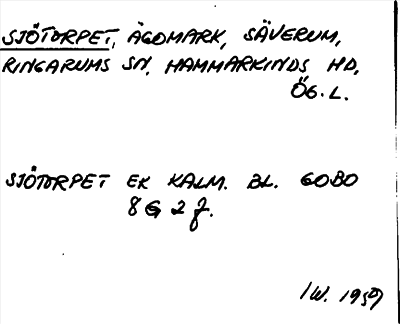 SJÖTORPET, ÄGOMARK, SÄVERUM,
RINGARUMS SN, HAMMARKINDS HD,
ÖG.L.
SJÖTORPET EK KALM. BL. GOBO
8G 2 f.
IW. 1959